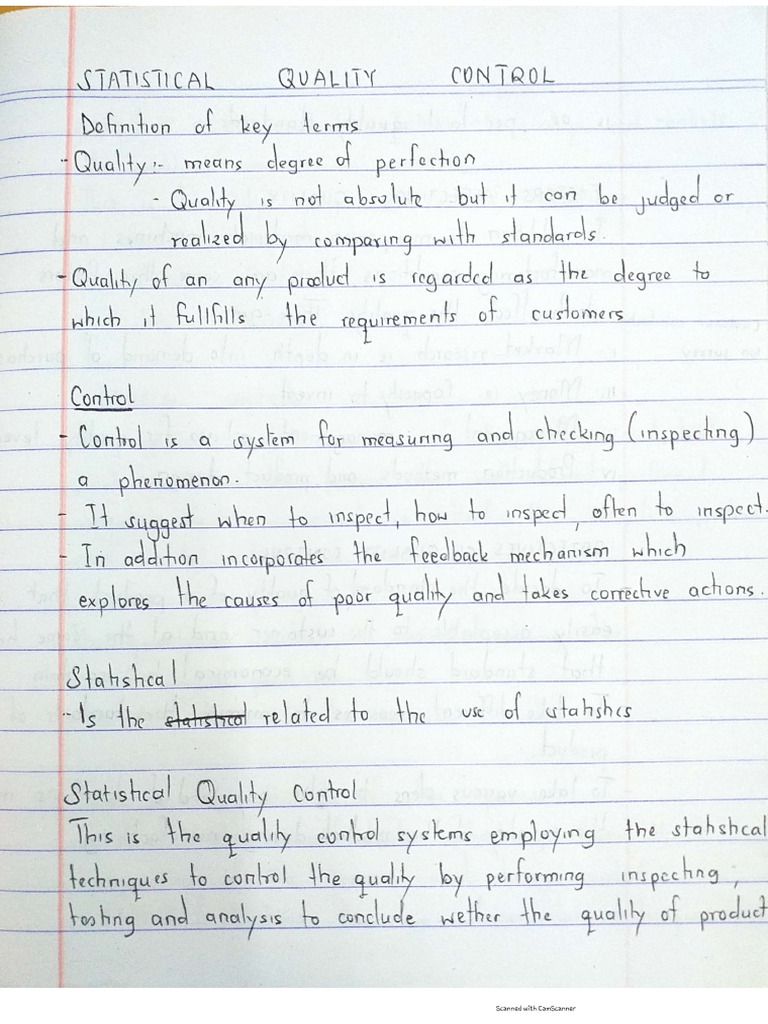 STATISTICAL QUALITY CONTROL
Definition of key terms
- Quality:- means degree of perfection
- Quality is not absolute but it can be judged or
realized by comparing with standards.
- Quality of an any product is regarded as the degree to
which it fullfills the requirements of customers
Control
- Control is a system for measuring and checking (inspecting)
a phenomenon.
- It suggest when to inspect, how to inspect, often to inspect.
- In addition incorporates the feedback mechanism which
explores the causes of poor quality and takes corrective actions.
Statistical
- Is the statistical related to the use of statistics
Statistical Quality Control
This is the quality control systems employing the statistical
techniques to control the quality by performing inspecting,
testing and analysis to conclude wether the quality of product
Scanned with CamScanner